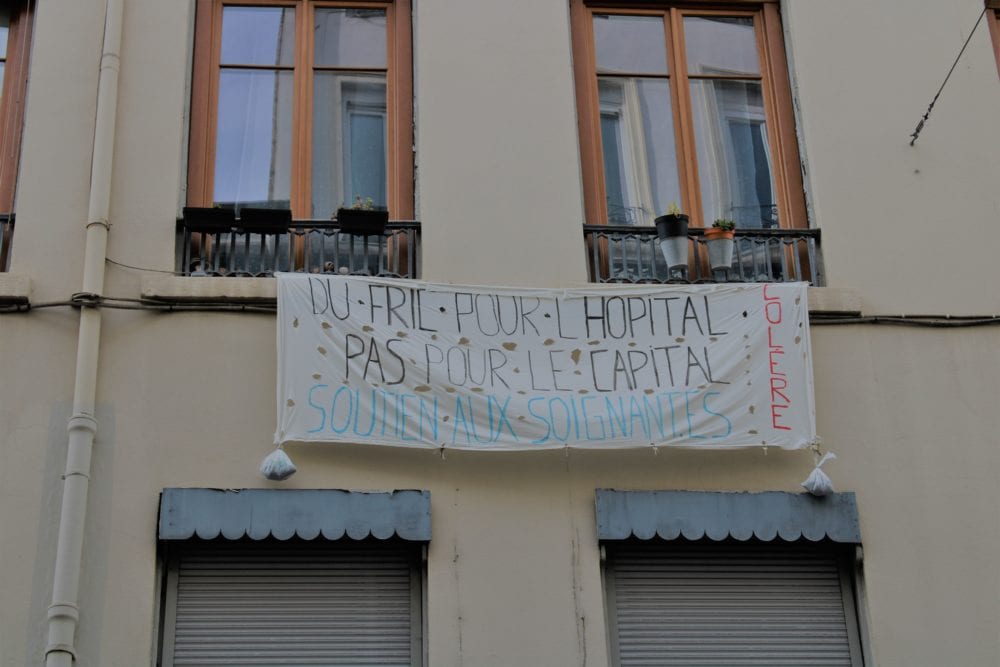 DU·FRIC·POUR·L'HOPITAL·
PAS·POUR·LE·CAPITAL
SOUTIEN AUX SOIGNANTES
COLERE